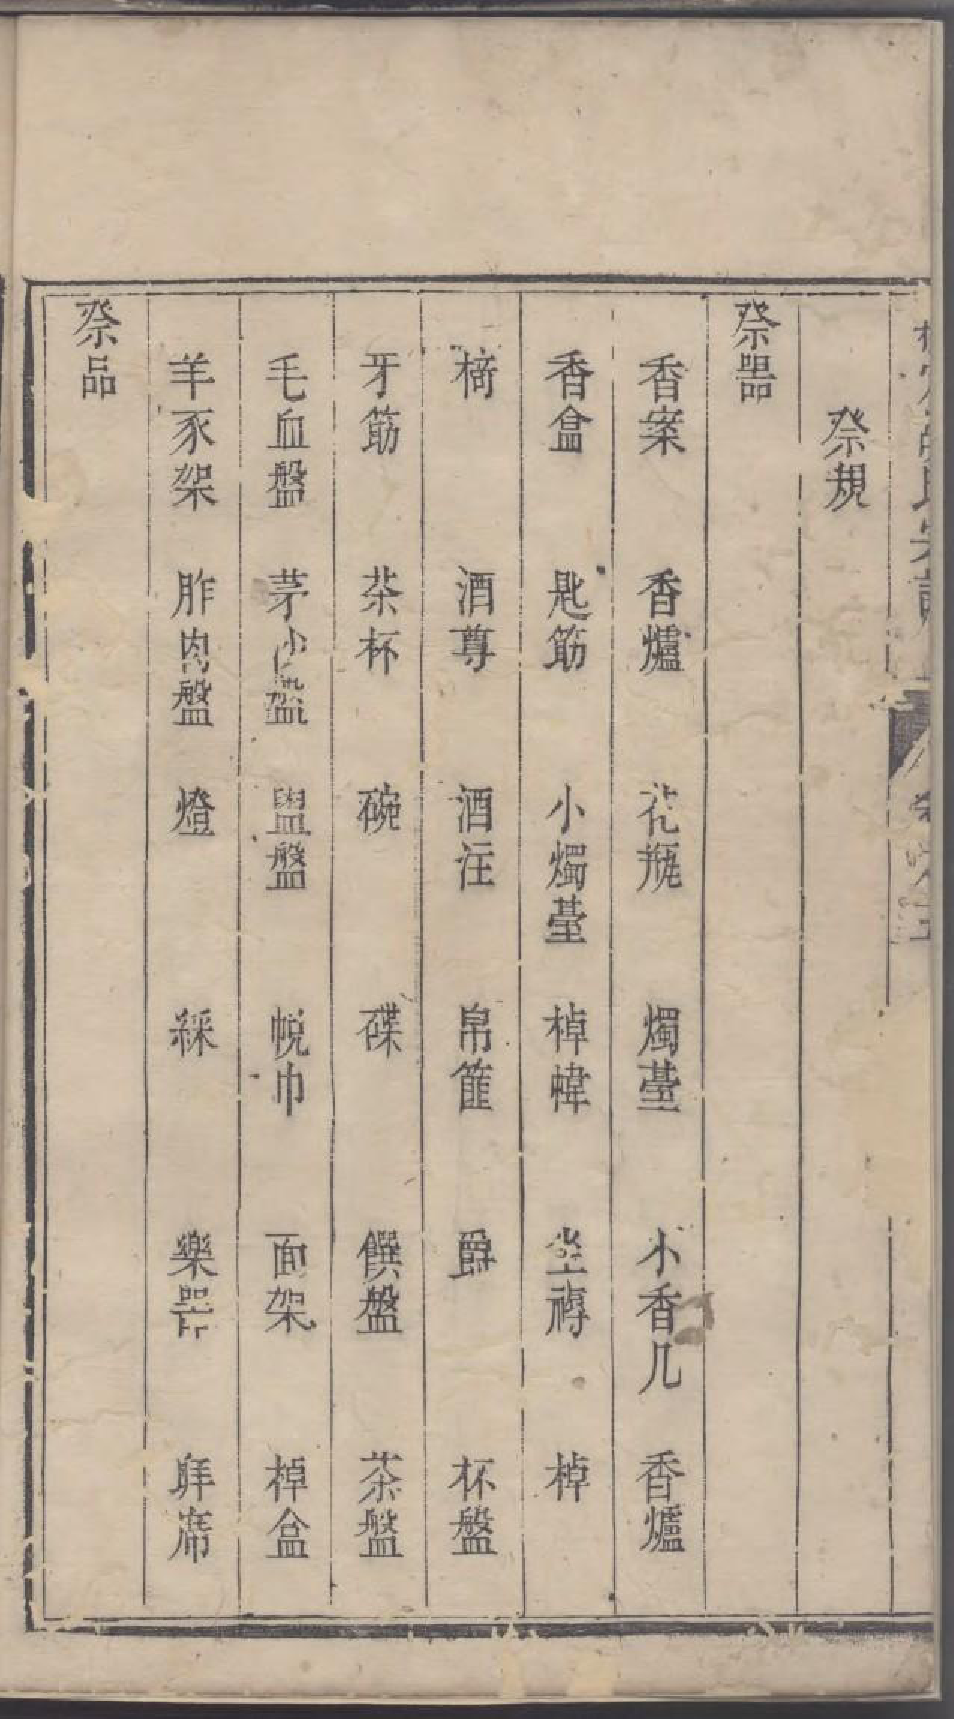 祭規
祭器
香案 香爐 花瓶 燭臺 小香几 香爐
香盒 匙筯 小燭臺 棹幃 坐褥 棹
椅 酒尊 酒注 帛篚 爵 杯盤
牙筯 茶杯 碗 碟 饌盤 茶盤
毛血盤 茅沙盤 盥盤 帨巾 面架 棹盒
羊豕架 胙肉盤 燈 綵 樂器 拜席
祭品